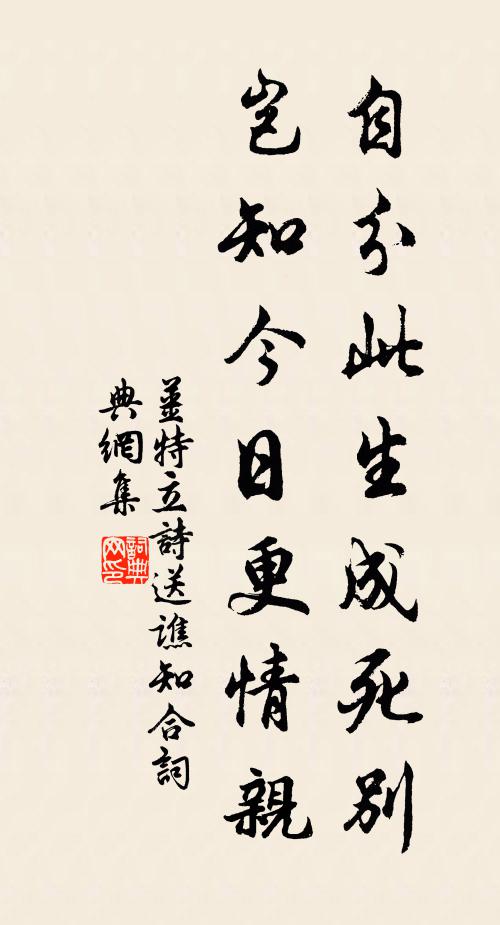 自分此生成死別
豈知今日更情親
薑特立詩送譙知合詞
典網集
詞典
网印